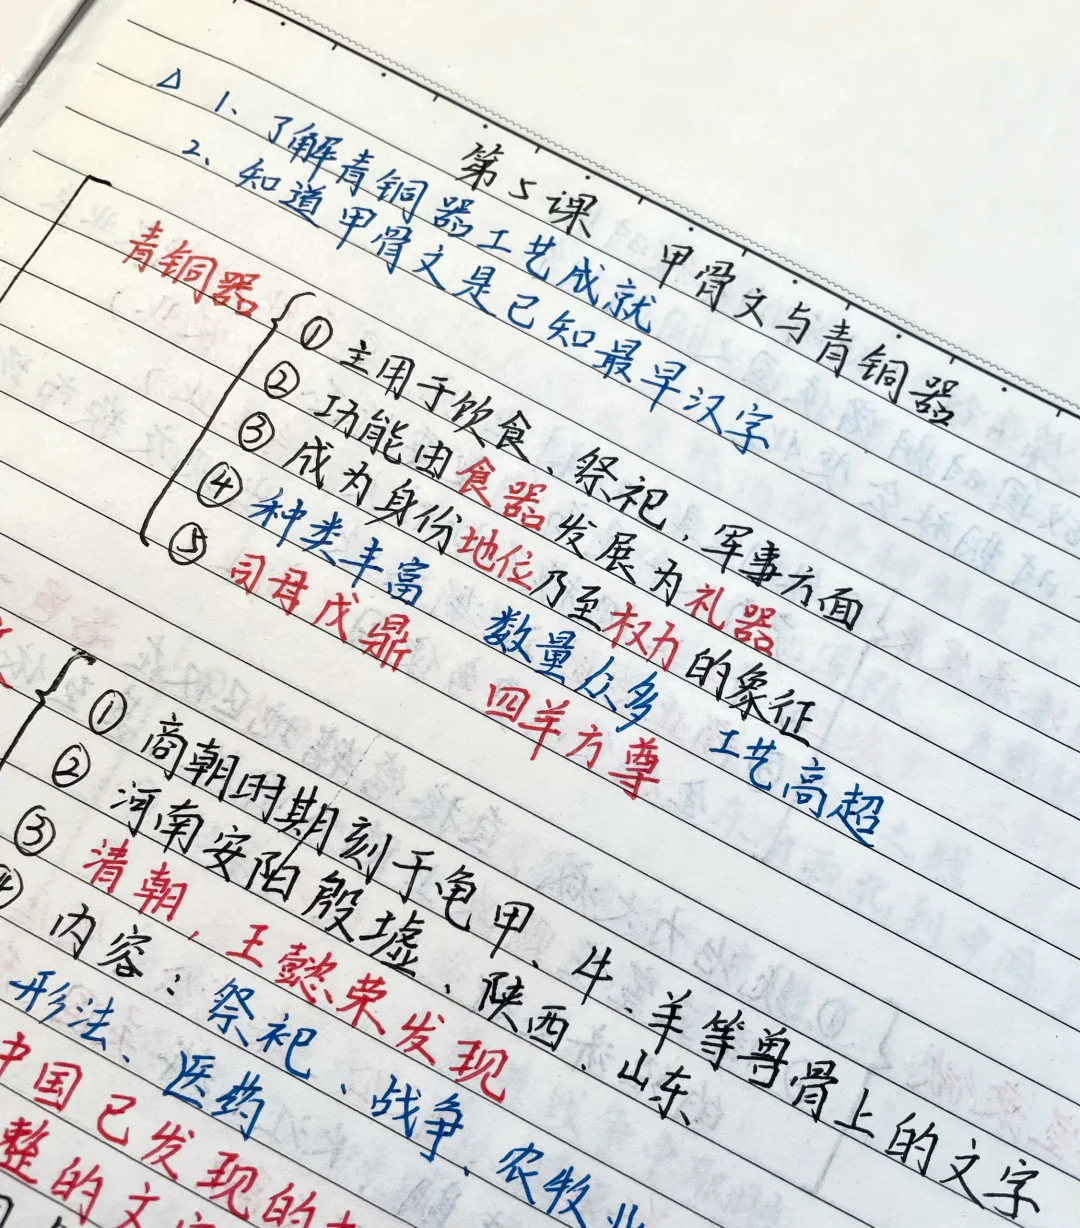 第5课 甲骨文与青铜器
△ 1、了解青铜器工艺成就
2、知道甲骨文是已知最早汉字
青铜器
① 主用于饮食、祭祀,军事方面
② 功能由食器发展为礼器
③ 成为身份地位乃至权力的象征
④ 种类丰富 数量众多 工艺高超
⑤ 司母戊鼎 四羊方尊
① 商朝时期刻于龟甲、牛、羊等兽骨上的文字
② 河南安阳殷墟、陕西、山东
③ 清朝,王懿荣发现
④ 内容:祭祀、战争、农牧业
形法、医药
中国已发现的
整的文